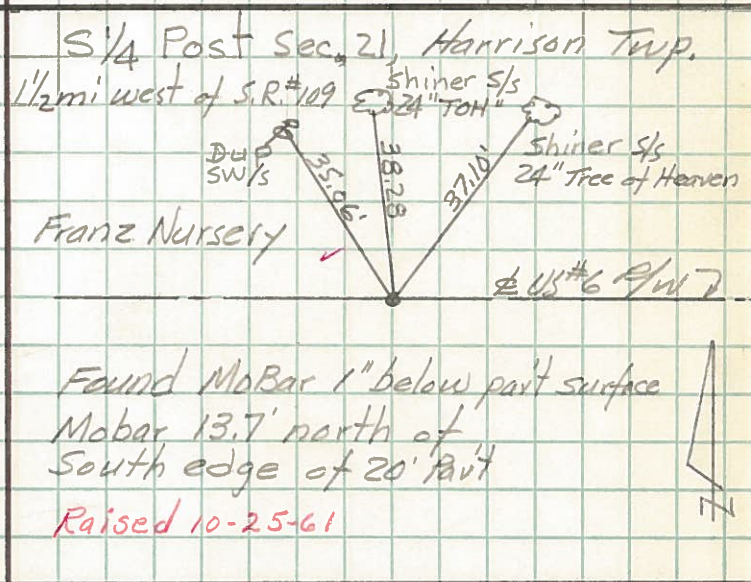 S 1/4 Post Sec. 21, Harrison Twp.
1 1/2 mi west of S.R. #109
Shiner S/s
24" "TOH"
Shiner S/s
24" Tree of Heaven
SW/s
35.06'
38.28
37.10'
Franz Nursery
℄ US #6 R/W
Found MoBar 1" below pav't surface
Mobar 13.7' north of
South edge of 20' Pav't
Raised 10-25-61
N